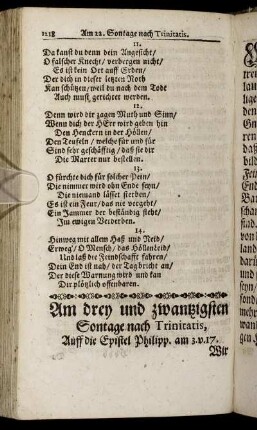 1218 Am 22. Sontage nach Trinitatis.
11.
Da kanst du denn dein Angesicht/
O falscher Knecht/ verbergen nicht/
Es ist kein Ort auff Erden/
Der dich in dieser letzten Noth
Kan schützen/ weil du nach dem Tode
Auch must gerichtet werden.
12.
Denn wird dir zagen Muth und Sinn/
Wenn dich der HErr wird geben hin
Den Henckern in der Höllen/
Den Teufeln/ welche für und für
Sind sehr geschäfftig/ daß sie dir
Die Marter nur bestellen.
13.
O fürchte dich für solcher Pein/
Die nimmer wird ohn Ende seyn/
Die niemand lässet sterben/
Es ist ein Feur/ das nie vergeht/
Ein Jammer der beständig steht/
Im ewigen Verderben.
14.
Hinweg mit allem Haß und Neid/
Erweg/ O Mensch/ das Höllenleid/
Und laß die Feindschafft fahren/
Dein End ist nah/ der Tag bricht an/
Der diese Warnung wird und kan
Dir plötzlich offenbaren.
Am drey und zwantzigsten
Sontage nach Trinitatis,
Auff die Epistel Philipp. am 3. v. 17.
Wir